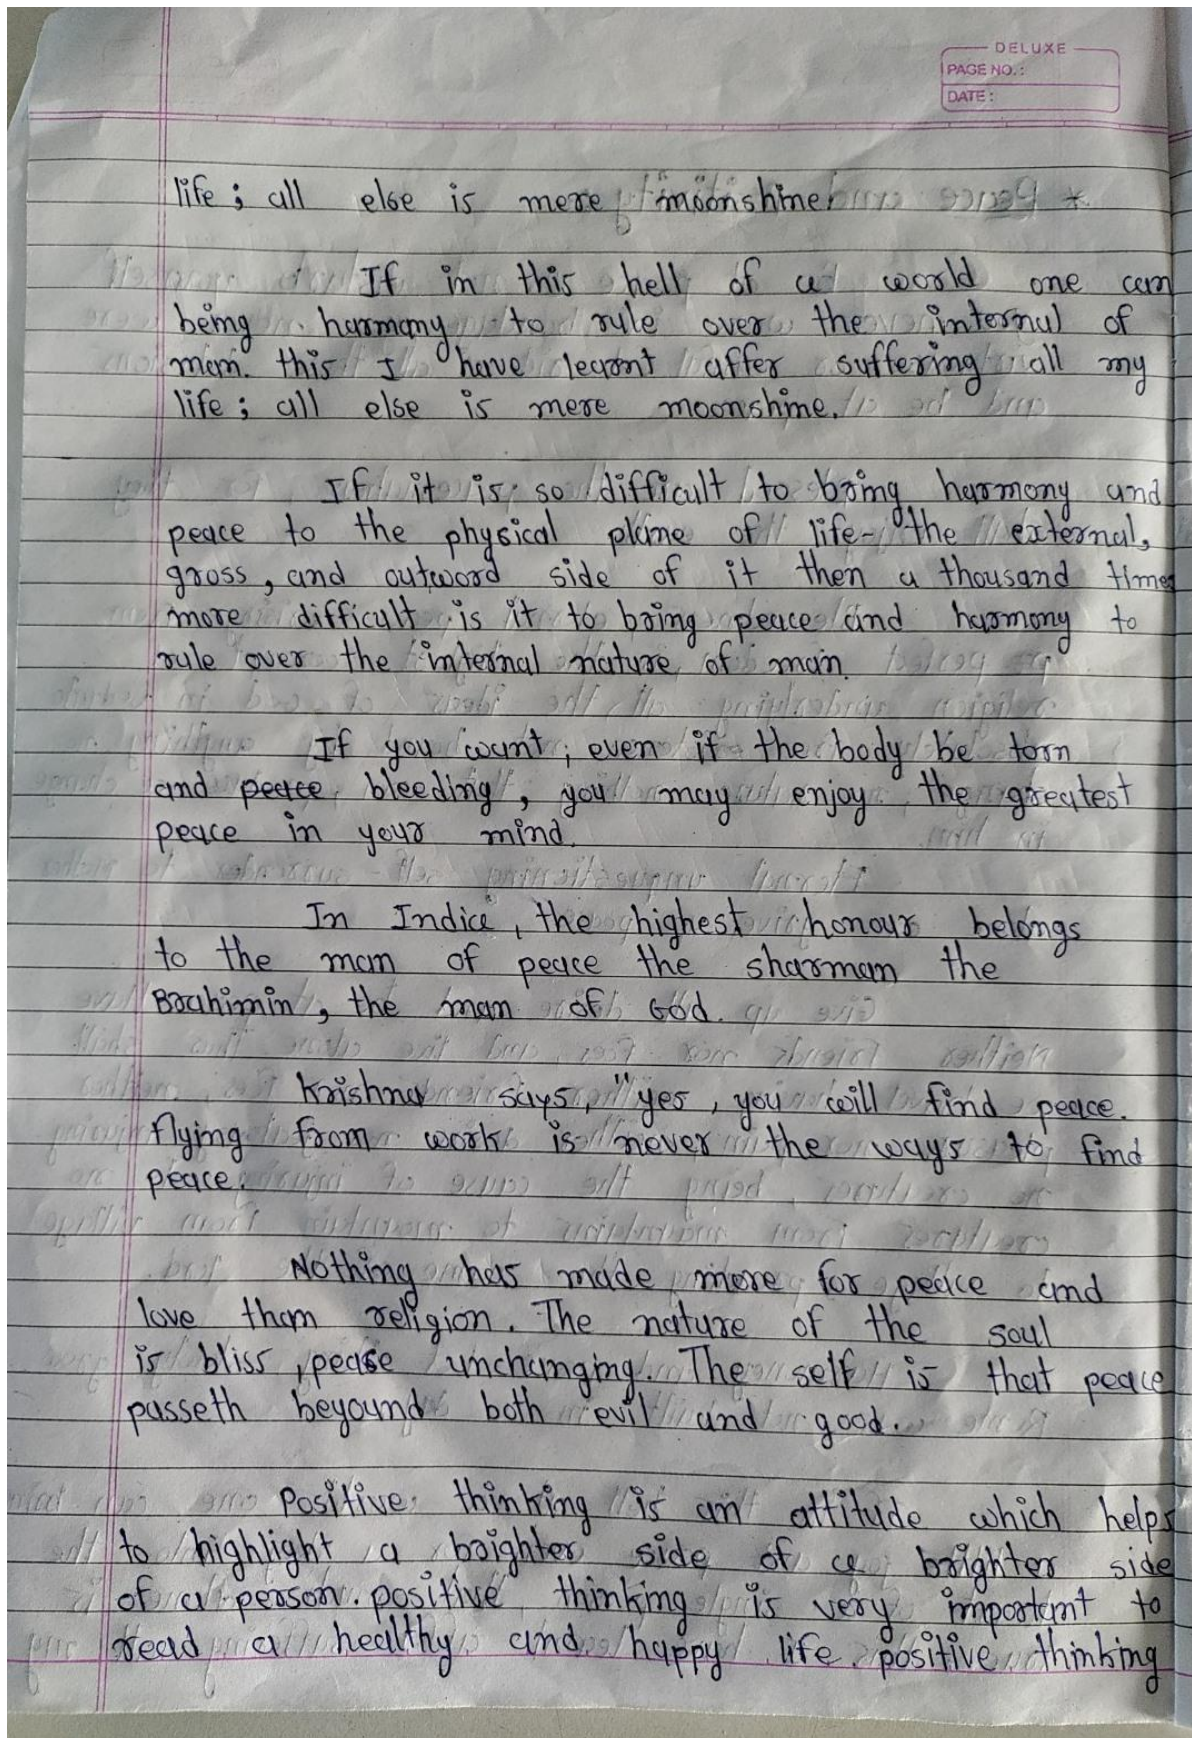 DELUXE
PAGE NO.:
DATE:
life; all else is mere moonshine.
If in this hell of a world one can
being harmony to rule over the internal of
man. this I have learnt affer suffering all my
life; all else is mere moonshine.
If it is so difficult to bring harmony and
peace to the physical plane of life- the external,
gross, and outword side of it then a thousand times
more difficult is it to bring peace and harmony to
rule over the internal nature of man.
If you want, even if the body be torn
and peace bleeding, you may enjoy the greatest
peace in your mind.
In India, the highest honour belongs
to the man of peace the sharman the
Brahimin, the man of God.
Krishna says, "yes, you will find peace.
flying from work is never the ways to find
peace.
Nothing has made more for peace and
love than religion. The nature of the soul
is bliss, pease unchanging. The self is that peace
passeth beyound both evil and good.
Positive thinking is an attitude which helps
to highlight a brighter side of a brighter side
of a person. positive thinking is very important to
read a healthy and happy life. positive thinking